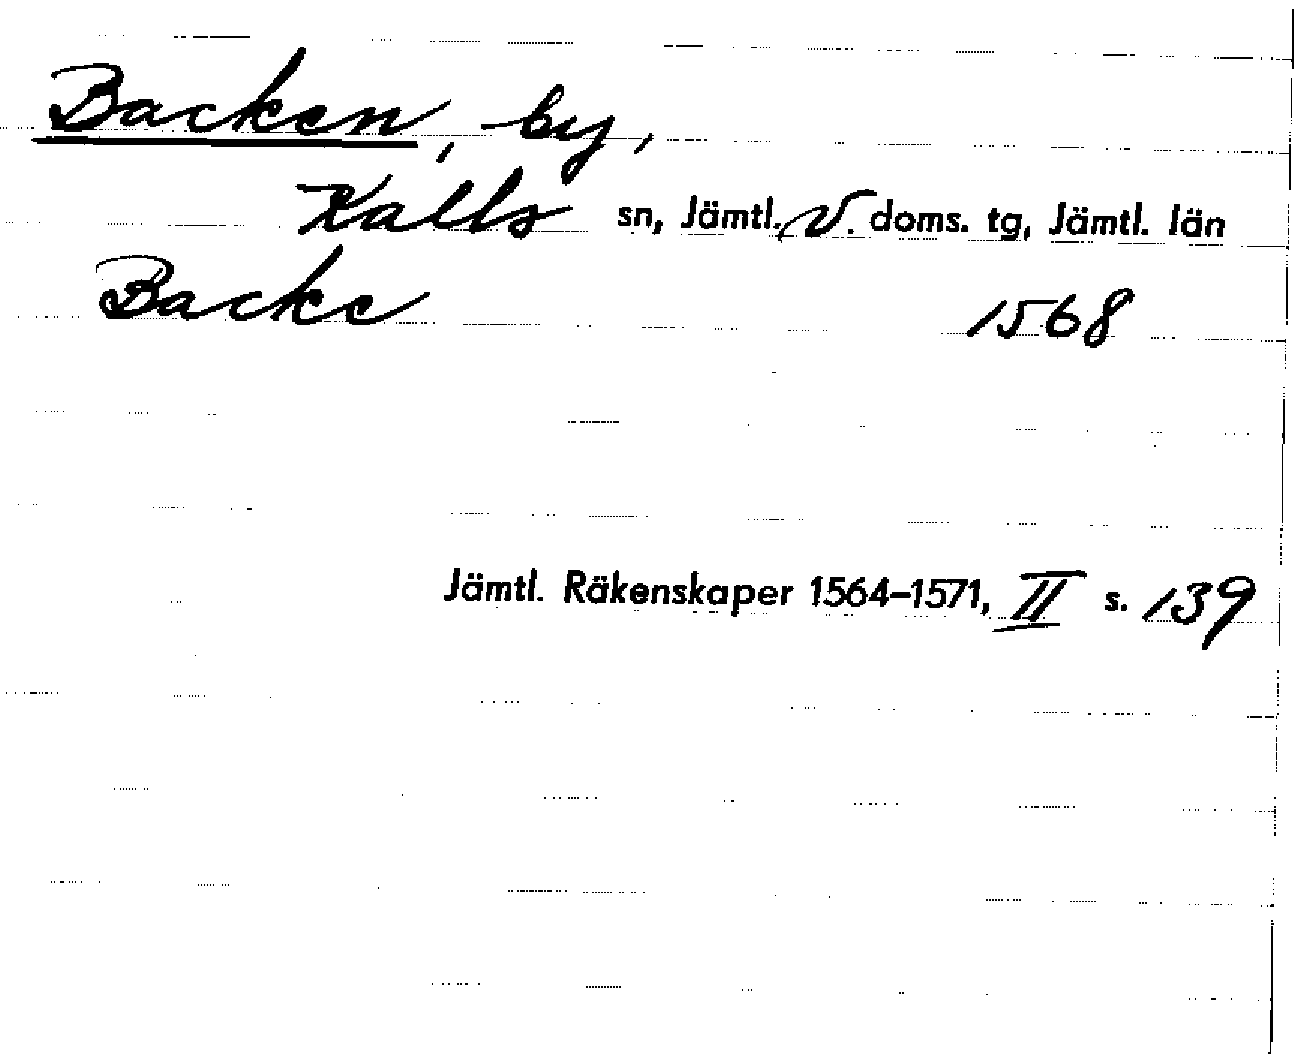 Backen, by,
Kalls sn, Jämtl. V. doms. tg, Jämtl. län
Backe 1568
Jämtl. Räkenskaper 1564–1571, II s. 139